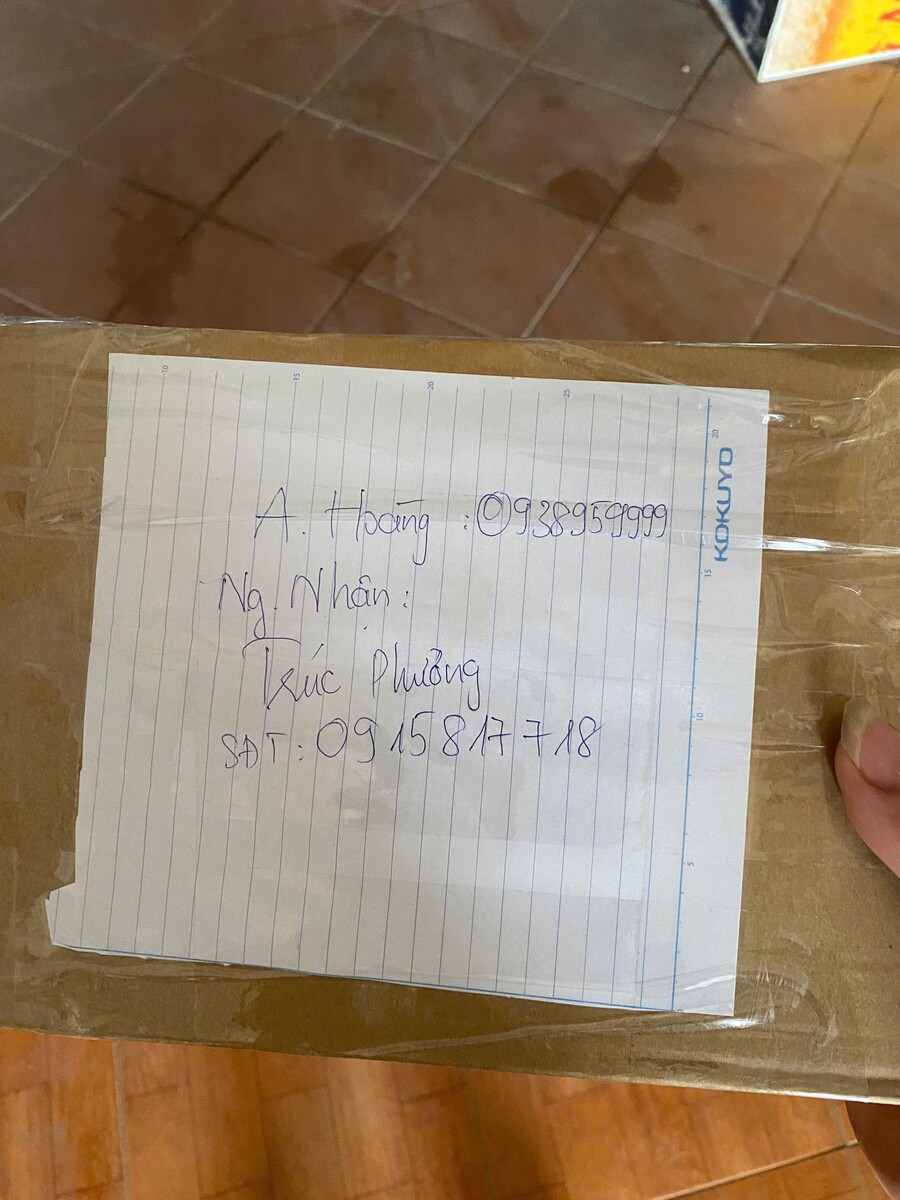 A. Hoàng : 0938959999
Ng. Nhận :
Trúc Phương
SĐT : 0915817718
KOKUYO
10
15
20
25
20
15
10
5